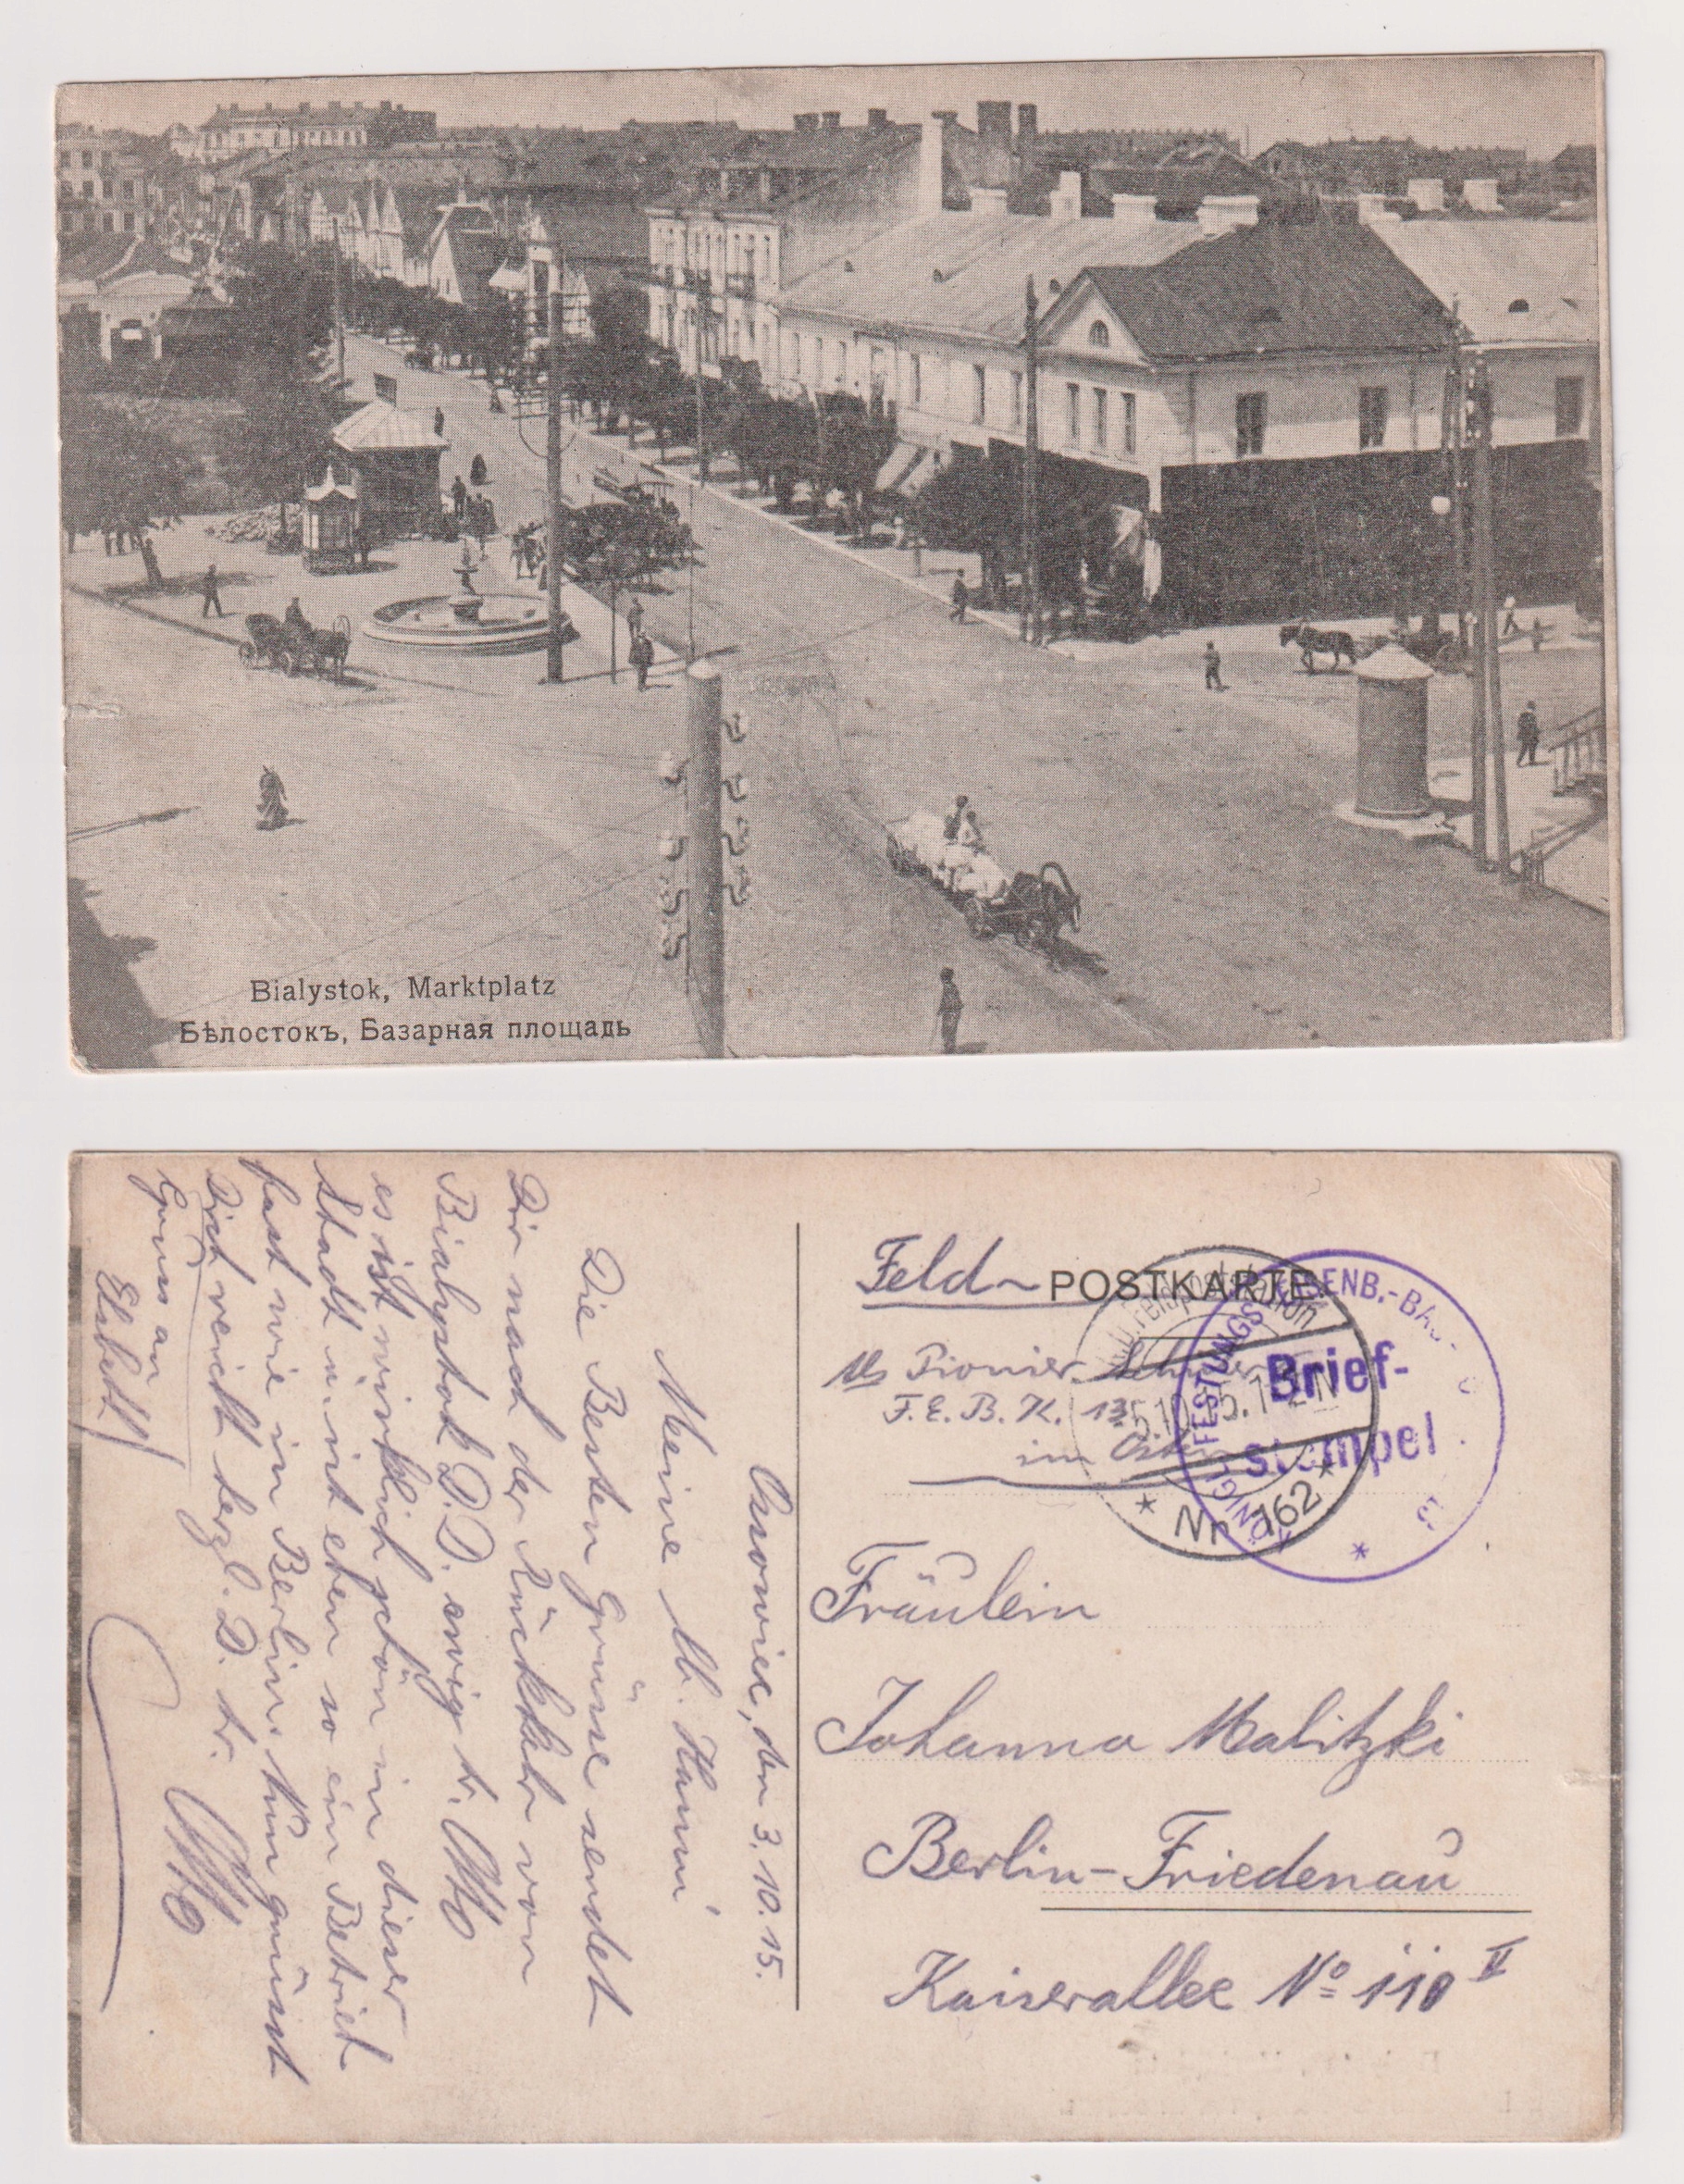 Bialystok, Marktplatz
Бѣлостокъ, Базарная площадь
Feld-POSTKARTE
Pionier
F. E. B. K. 13
im Osten
Feldpoststation
5.10.15.
* Nr. 162 *
KÖNIGL. FESTUNGS-EISENB.-BAU-
Brief-
stempel
Fräulein
Johanna Malitzki
Berlin-Friedenau
Kaiserallee No 110 II
Ossowiec, den 3.10.15.
Meine lb. Hanni
Die Besten Grüsse sendet
Dir nach der Rückkehr von
Bialystok D. D. ewig tr. Otto
es ist wirklich schön in dieser
Stadt u. ist eben so ein Betrieb
fast wie in Berlin. Nun grüsst
Dich recht herzl. D. tr. Otto
Gruss an
Elsbeth